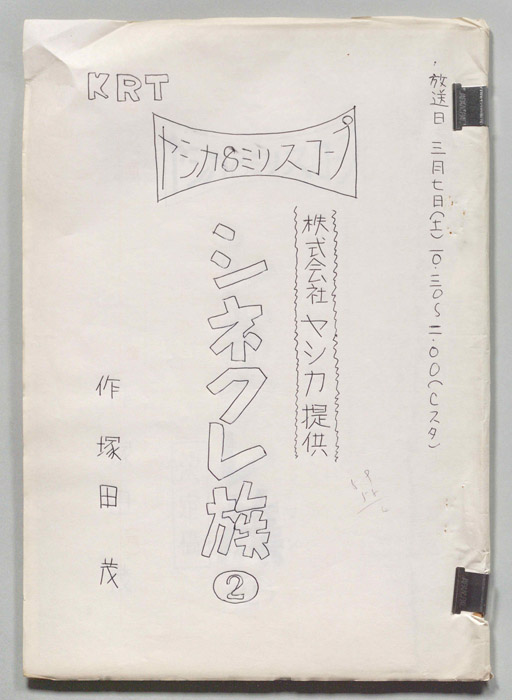 放送日 三月七日(土)一〇・三〇〜一一・〇〇(Cスタ)
KRT
ヤシカ8ミリスコープ
株式会社 ヤシカ提供
シネクレ族
②
作 塚田 茂